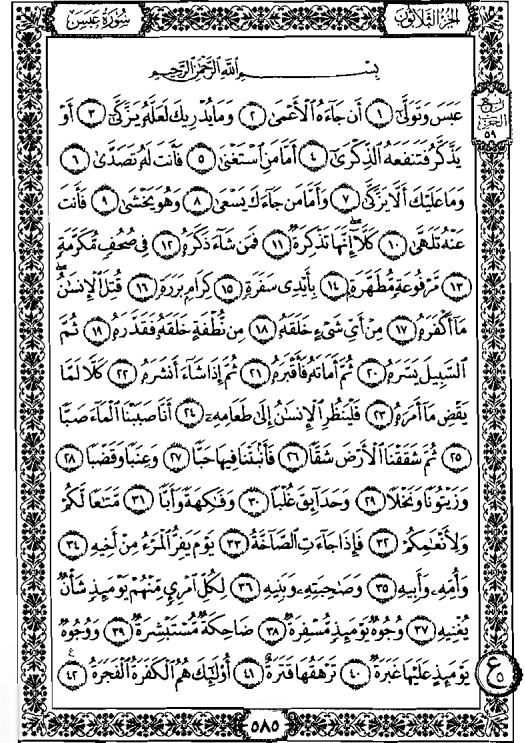 سُورَةُ عَبَسَ
الجُزْءُ الثَّلَاثُونَ
بِسْمِ اللَّهِ الرَّحْمَٰنِ الرَّحِيمِ
عَبَسَ وَتَوَلَّىٰ ١ أَن جَاءَهُ الْأَعْمَىٰ ٢ وَمَا يُدْرِيكَ لَعَلَّهُ يَزَّكَّىٰ ٣ أَوْ
يَذَّكَّرُ فَتَنفَعَهُ الذِّكْرَىٰ ٤ أَمَّا مَنِ اسْتَغْنَىٰ ٥ فَأَنتَ لَهُ تَصَدَّىٰ ٦
وَمَا عَلَيْكَ أَلَّا يَزَّكَّىٰ ٧ وَأَمَّا مَن جَاءَكَ يَسْعَىٰ ٨ وَهُوَ يَخْشَىٰ ٩ فَأَنتَ
عَنْهُ تَلَهَّىٰ ١٠ كَلَّا إِنَّهَا تَذْكِرَةٌ ١١ فَمَن شَاءَ ذَكَرَهُ ١٢ فِي صُحُفٍ مُّكَرَّمَةٍ
١٣ مَّرْفُوعَةٍ مُّطَهَّرَةٍ ١٤ بِأَيْدِي سَفَرَةٍ ١٥ كِرَامٍ بَرَرَةٍ ١٦ قُتِلَ الْإِنسَٰنُ
مَا أَكْفَرَهُ ١٧ مِنْ أَيِّ شَيْءٍ خَلَقَهُ ١٨ مِن نُّطْفَةٍ خَلَقَهُ فَقَدَّرَهُ ١٩ ثُمَّ
السَّبِيلَ يَسَّرَهُ ٢٠ ثُمَّ أَمَاتَهُ فَأَقْبَرَهُ ٢١ ثُمَّ إِذَا شَاءَ أَنشَرَهُ ٢٢ كَلَّا لَمَّا
يَقْضِ مَا أَمَرَهُ ٢٣ فَلْيَنظُرِ الْإِنسَٰنُ إِلَىٰ طَعَامِهِ ٢٤ أَنَّا صَبَبْنَا الْمَاءَ صَبًّا
٢٥ ثُمَّ شَقَقْنَا الْأَرْضَ شَقًّا ٢٦ فَأَنبَتْنَا فِيهَا حَبًّا ٢٧ وَعِنَبًا وَقَضْبًا ٢٨
وَزَيْتُونًا وَنَخْلًا ٢٩ وَحَدَائِقَ غُلْبًا ٣٠ وَفَٰكِهَةً وَأَبًّا ٣١ مَّتَٰعًا لَّكُمْ
وَلِأَنْعَٰمِكُمْ ٣٢ فَإِذَا جَاءَتِ الصَّاخَّةُ ٣٣ يَوْمَ يَفِرُّ الْمَرْءُ مِنْ أَخِيهِ ٣٤
وَأُمِّهِ وَأَبِيهِ ٣٥ وَصَٰحِبَتِهِ وَبَنِيهِ ٣٦ لِكُلِّ امْرِئٍ مِّنْهُمْ يَوْمَئِذٍ شَأْنٌ
يُغْنِيهِ ٣٧ وُجُوهٌ يَوْمَئِذٍ مُّسْفِرَةٌ ٣٨ ضَاحِكَةٌ مُّسْتَبْشِرَةٌ ٣٩ وَوُجُوهٌ
يَوْمَئِذٍ عَلَيْهَا غَبَرَةٌ ٤٠ تَرْهَقُهَا قَتَرَةٌ ٤١ أُولَٰئِكَ هُمُ الْكَفَرَةُ الْفَجَرَةُ ٤٢
ربع
الحزب
٥٩
ع
٥
٥٨٥